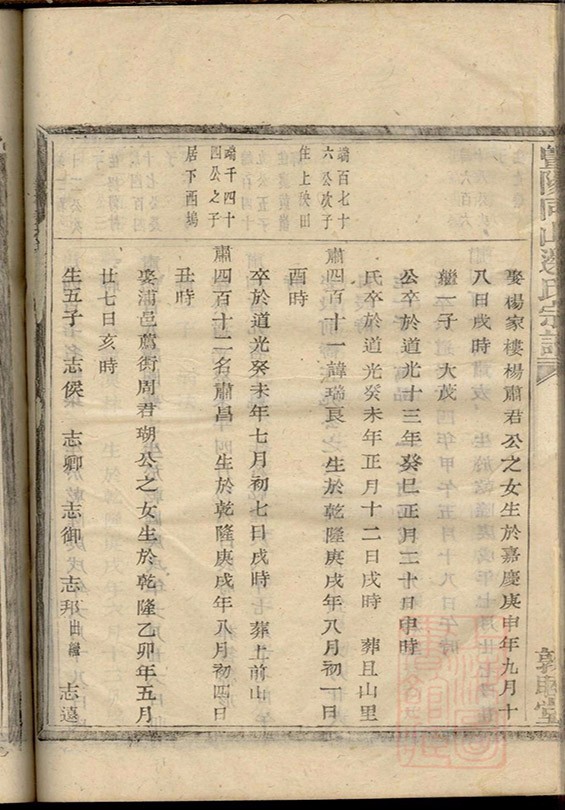 娶楊家樓楊肅君公之女生於嘉慶庚申年九月十
八日戌時
繼一子 大茂
公卒於道光十三年癸巳正月二十日申時
氏卒於道光癸未年正月十二日戌時 葬且山里
端百七十
六公次子
住上泱田
肅四百十一諱瑞良 生於乾隆庚戌年八月初一日
酉時
卒於道光癸未年七月初七日戌時 葬上前山
端千四十
四公之子
居下西塢
肅四百十二名肅昌 生於乾隆庚戌年八月初四日
丑時
娶浦邑薦街周君瑚公之女生於乾隆乙卯年五月
廿七日亥時
生五子 志侯 志卿 志御 志邦 出繼 志遠
暨陽同山邊氏宗譜
敦睦堂